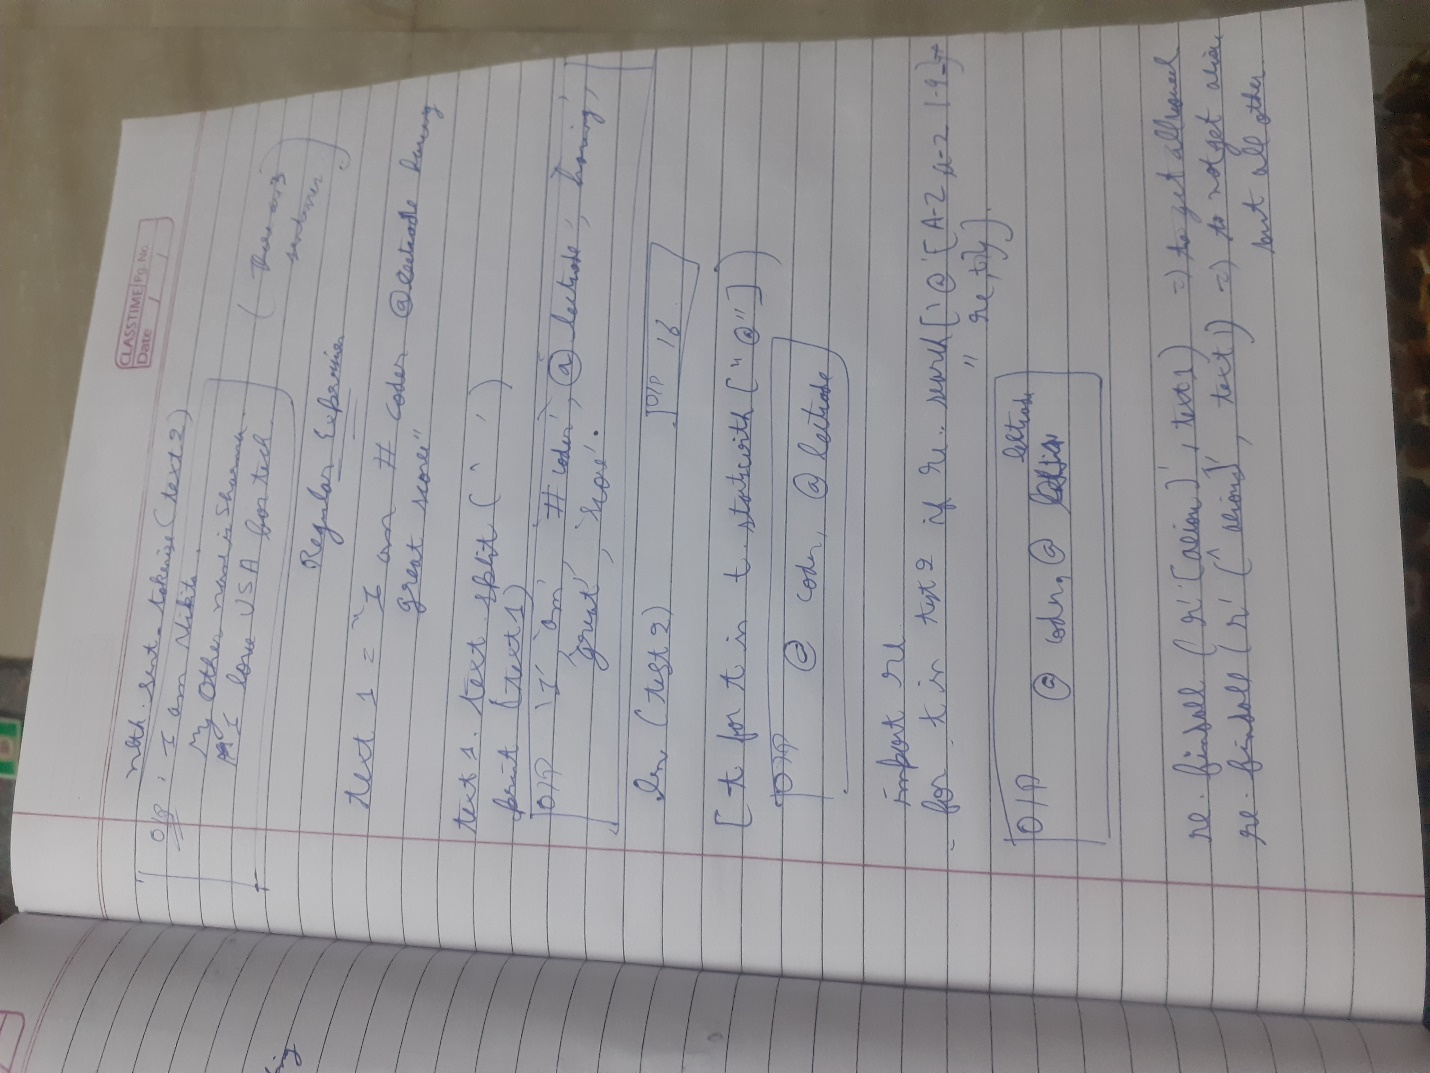 CLASSTIME Pg. No.
Date / /
nltk. sent_tokenize (text 2)
O/P : I am Nikita
My other name is Sharma
I love USA for tech
(There are 3
sentences)
Regular Expression
text 1 = "I am # coder @ having
great score"
text 1. text. split (' ')
print (text 1)
O/P 'I' 'am' '# coder', '@', 'having',
'great', 'score'.
len (text 2)
O/P 16
[t for t in t. startswith ["@"])
O/P @ coder, @
import re
for t in text 2 if re. search ['@ [A-Z a-z 1-9]+
", t)]
O/P
@ coder, @
re. findall (r' [aeiou]', text 1) => to get all vowel
re. findall (r' [^ aeiou]', text 1) => to not get aeiou
but all other